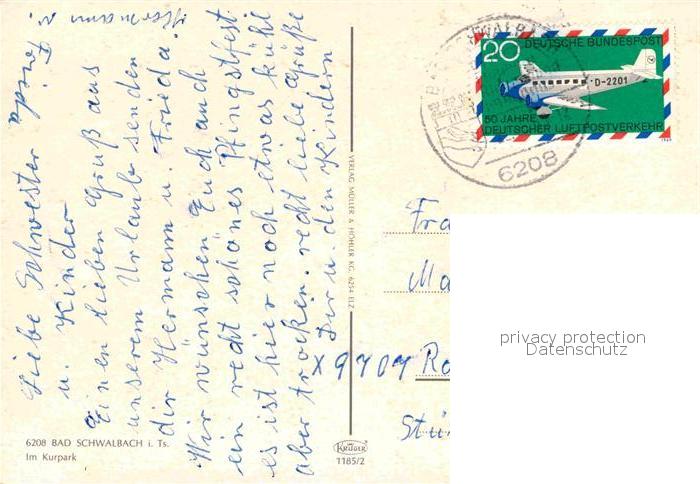 Liebe Schwester
u. Kinder
Einen lieben Gruß aus
unserem Urlaub senden
dir Hermann u. Frieda.
Wir wünschen Euch auch
ein recht schönes Pfingstfest
es ist hier noch etwas kühl
aber trocken. recht liebe Grüße
Dir u. den Kindern
Hermann u.
Frieda
6208 BAD SCHWALBACH i. Ts.
Im Kurpark
VERLAG MÜLLER & HÖHLER KG, 6254 ELZ
KRÜGER
1185/2
20 DEUTSCHE BUNDESPOST
D-2201
50 JAHRE
DEUTSCHER LUFTPOSTVERKEHR
1969
BAD SCHWALBACH
6208
Fra
Ma
Ro
Stü
privacy protection
Datenschutz